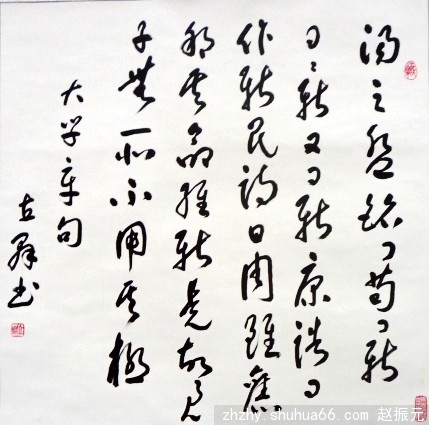 汤之盘铭曰苟日新
日日新又日新康诰曰
作新民诗曰周雖舊
邦其命维新是故君
子無所不用其極
大学章句
书
zhzhy.shuhua66.com 赵振元